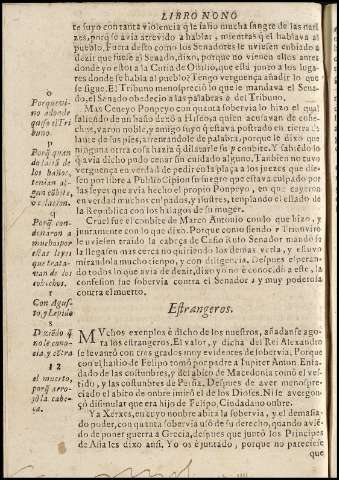 LIBRO NONO
te suyo con tanta violencia q̃ le salio mucha sangre de las nari
zes, porq̃ se avia atrevido a hablar, mientras q̃ el hablava al
pueblo. Fuera desto como los Senadores le uviesen enbiado a
dezir que fuese al Senado, dixo, porque no vienen ellos antes
donde yo estoi a la Curia de Ostilio, que está junto a los luga-
res donde se habla al pueblo? Tengo verguença añadir lo que
se sigue. El Tribuno menospreció lo que le mandava el Sena-
do, el Senado obedecio a las palabras d̃l Tribuno.
Mas Ceneyo Ponpeyo con quanta sobervia lo hizo el qual
saliendo de un baño dexó a Hifeoja quien acusavan de cohe-
chos, varon noble, y amigo suyo q̃ estava postrado en tierra de
lante de sus pies, afrentandole de palabra, porque le dixo que
ninguna otra cosa hazia q̃ dilatarle su conbite. Y sabiẽdo lo
q̃ avia dicho pudo cenar sin cuidado alguno. Tanbien no tuvo
verguença en verdad de pedir en la plaça a los juezes, que die-
sen por libre a Publio Cipion su suegro que estava culpado por
las leyes que avia hecho el propio Ponpeyo, en que cayeron
en verdad muchos culpados, y ilustres, tenplando el estado de
la Republica con los halagos de su muger.
Cruel fue el conbite de Marco Antonio como que hizo, y
juntamente con lo que dixo. Porque como siendo Triunviro
le uviesen traido la cabeça de Cesio Rufo Senador mandó se
la llegasen mas cerca no quiriendo los demas verla, y estuvo
mirandola mucho tienpo, y con diligencia. Despues esperan-
do todos lo que avia de dezir, dixo yo no é conocido a este, la
confesion fue sobervia contra el Senador, y muy poderosa
contra el muerto.
Estrangeros.
MUchos exenplos é dicho de los nuestros, añadanse ago-
ra los estrangeros. El valor, y dicha del Rei Alexandro
se levantó con tres grados muy evidentes de sobervia. Porque
con el hastio de Felipo tomó por padre a Iupiter Amon. Enfa-
dado de las costunbres, y del abito de Macedonia tomó el ves-
tido, y las costunbres de Persia. Despues de aver menospre-
ciado el abito de onbre imitó el de los Dioses. Ni se avergon-
çó disimular que era hijo de Felipo, Ciudadano onbre.
Ya Xerxes, en cuyo nonbre abita la sobervia, y el demasia-
do poder, con quanta sobervia usó de su derecho, quando aviẽ-
do de poner guerra a Grecia, despues que juntó los Principes
de Asia les dixo ansi. Yo os é juntado, porque no pareciese
que
o
Porque vi-
no adonde
gusta el Tri
buno.
p
Porq̃ quan
do salia de
los baños,
tenian al-
gun cõbite,
o colacion.
q
Porq̃ con-
denaron a
muchos por
estas leyes
que trata-
van de los
cohechos.
r
Con Augus
to, y Lepido
s
Diziẽdo q̃
no le cono-
cia, y esto era
12
el muerto,
porq̃ arro-
jó la cabe-
ça.